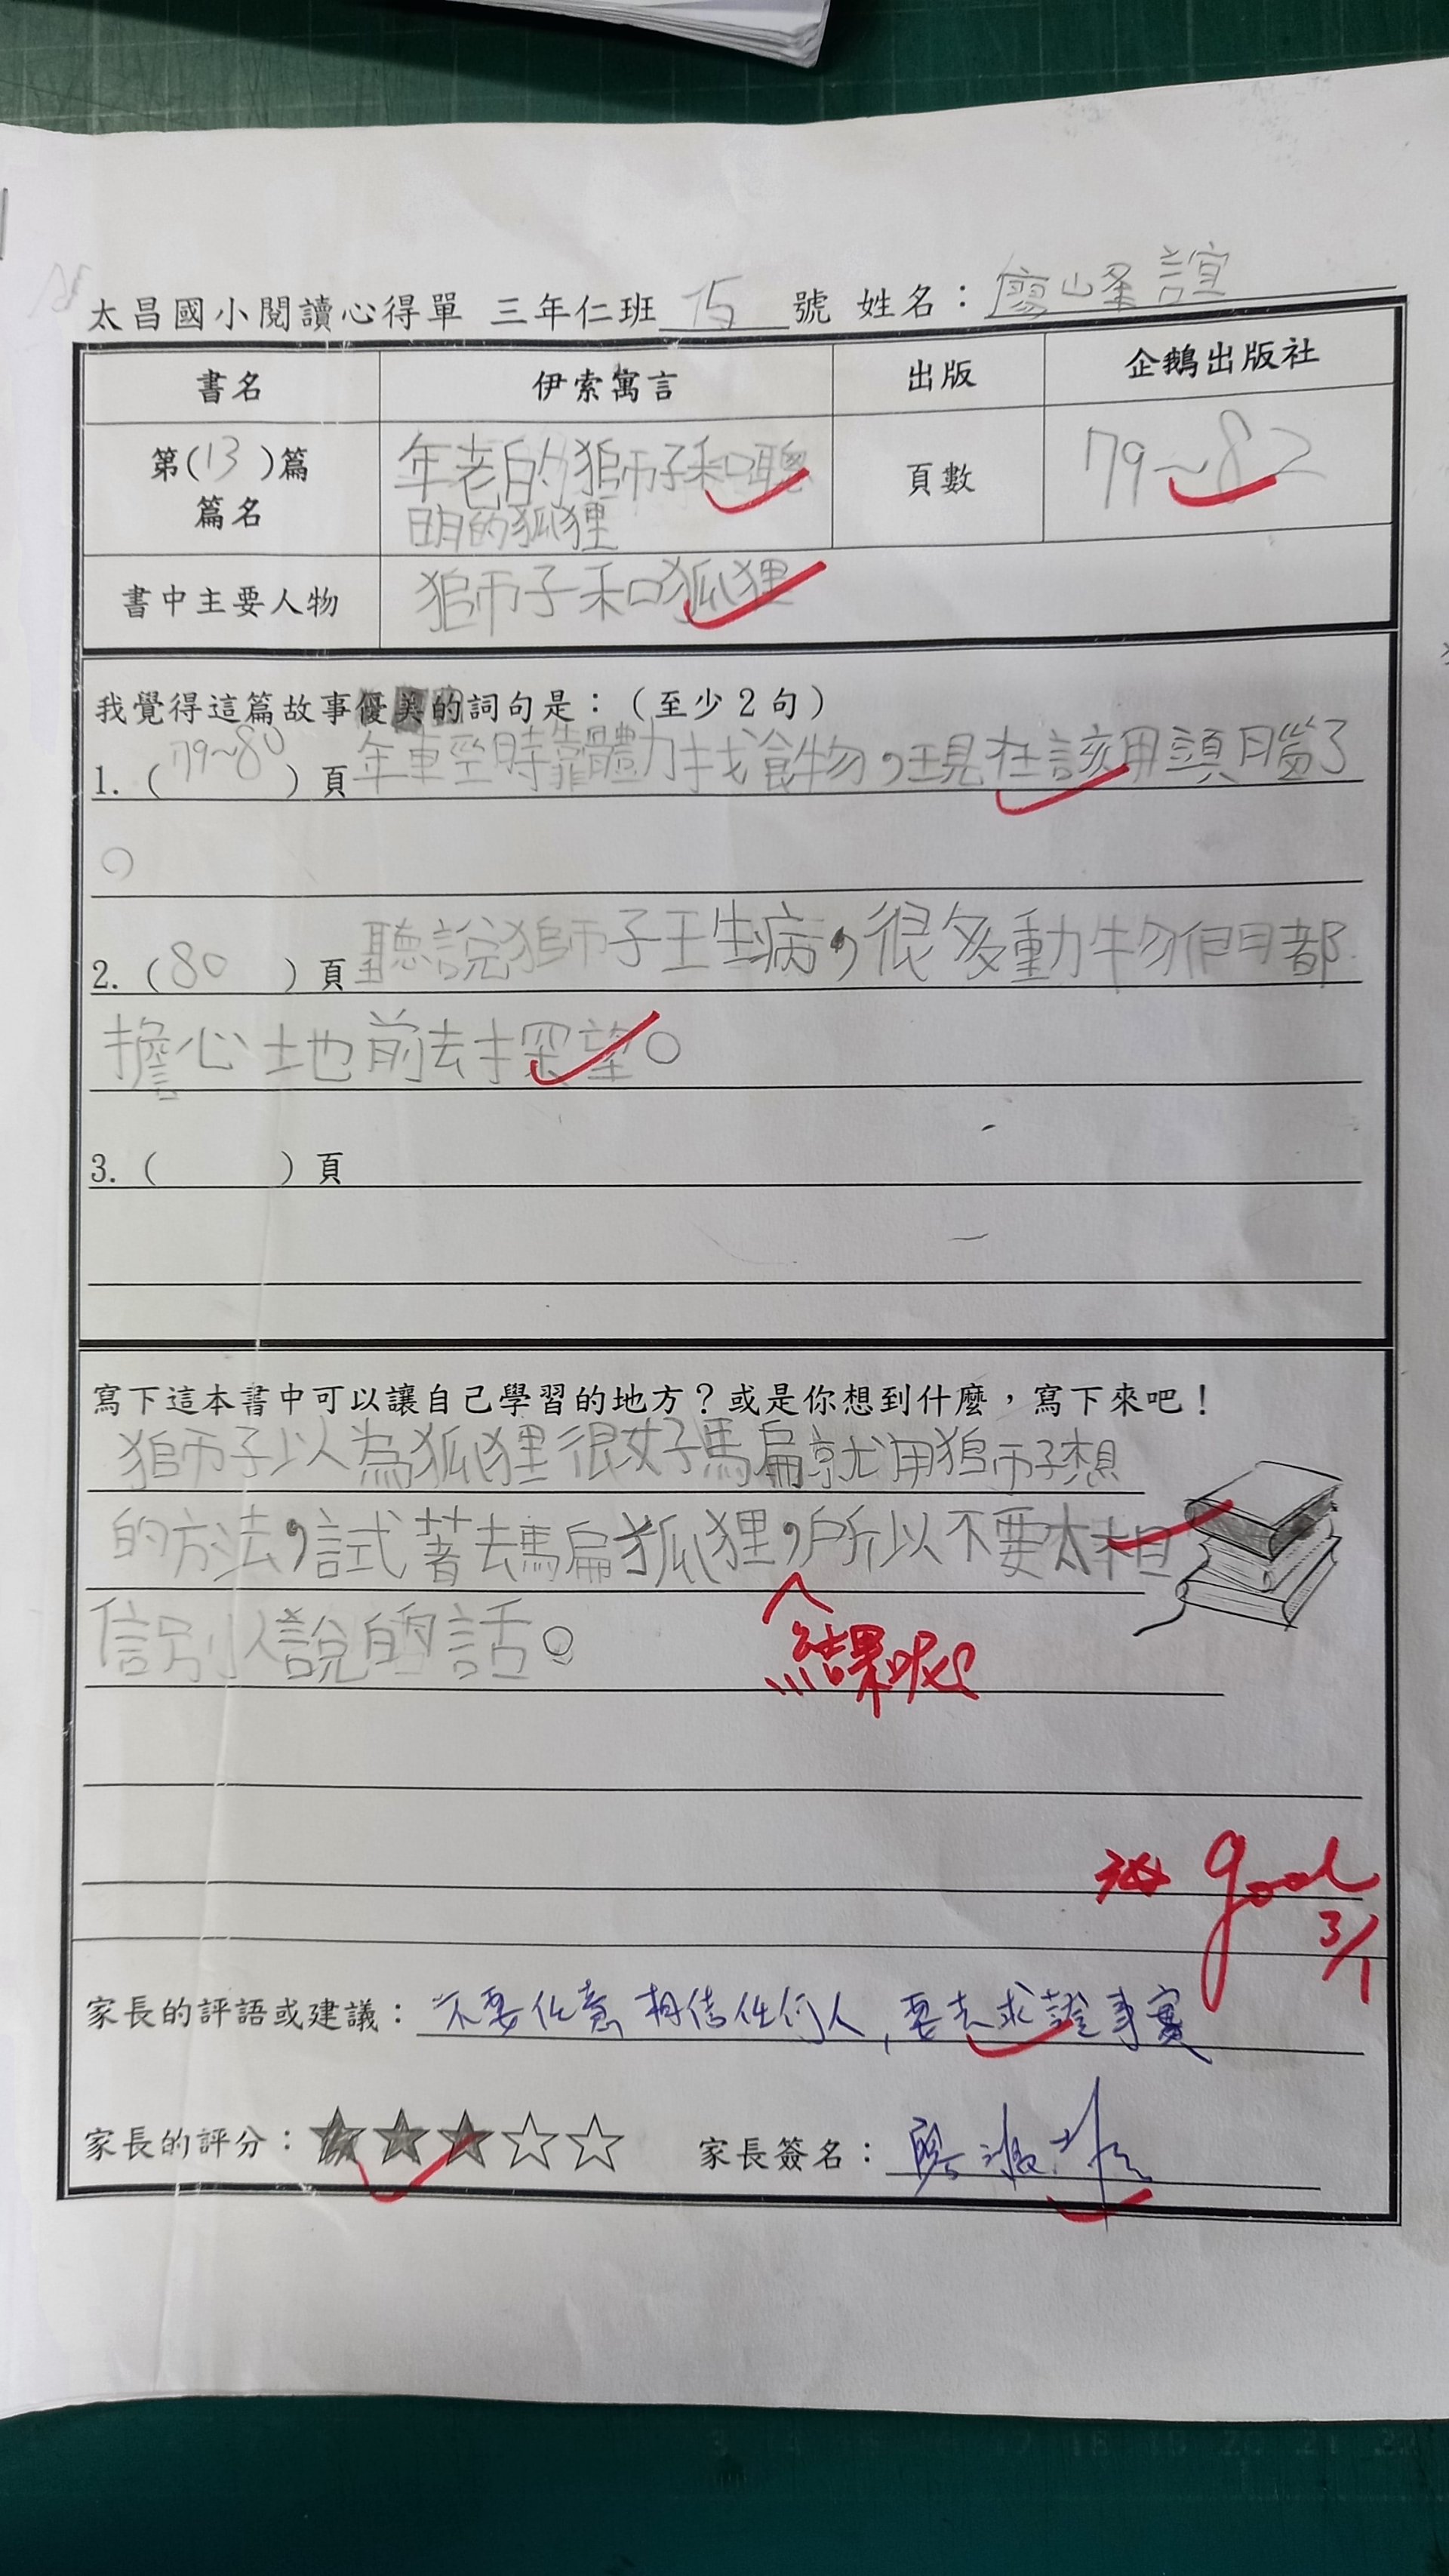 太昌國小閱讀心得單 三年仁班 15 號 姓名：廖峯誼
書名 伊索寓言 出版 企鵝出版社
第(13)篇 篇名 年老的獅子和聰 頁數 79~82
明的狐狸
書中主要人物 獅子和狐狸
我覺得這篇故事優美的詞句是：（至少2句）
1.（79~80）頁 年輕時靠體力找食物，現在該用頭腦了
。
2.（80）頁 聽說獅子王生病，很多動物們都
擔心地前去探望。
3.（ ）頁
寫下這本書中可以讓自己學習的地方？或是你想到什麼，寫下來吧！
獅子以為狐狸很好騙就用獅子想
的方法，試著去騙狐狸，所以不要太相
信別人說的話。
結果呢?
good
3/1
家長的評語或建議：不要任意相信任何人，要去求證事實
家長的評分：★★★☆☆ 家長簽名：廖